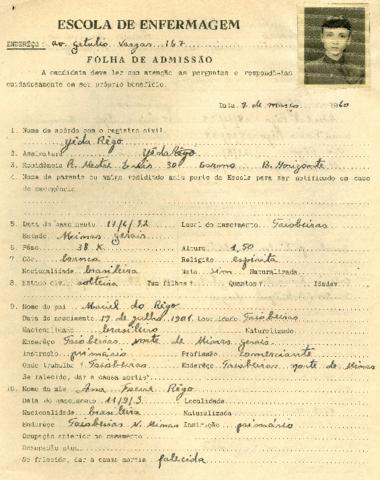 ESCOLA DE ENFERMAGEM
ENDERÊÇO: av. getulio Vargas 167
FOLHA DE ADMISSÃO
A candidata deve ler com atenção as perguntas e respondê-las
cuidadosamente em seu próprio benefício.
Data 7 de março 1960
1. Nome de acordo com o registro civil.
Yêda Rêgo
2. Assinatura Yêda Rêgo
3. Residência R. Mestre Luis 30 B. Horizonte
4. Nome de parente ou outro residindo mais perto da Escola para ser notificado em caso
de emergência.
5. Data do nascimento 17/6/32 Local do nascimento Taiobeiras
Estado Minas gerais
6. Pêso 38 K. Altura 1,50
7. Côr branca Religião espírita
Nacionalidade brasileira Nata sim Naturalizada
8. Estado civil solteira Tem filhos? Quantos? Idades
9. Nome do pai Maciel do Rêgo
Data do nascimento 19 de julho 1901 Localidade Taiobeiras
Nacionalidade brasileiro Naturalizado
Enderêço Taiobeiras, norte de Minas gerais
Instrução primário Profissão comerciante
Onde trabalha? Taiobeiras Enderêço Taiobeiras, norte de Minas
Se falecido, dar a causa mortis
10. Nome da mãe Ana Rêgo
Data do nascimento 11/9/3 Localidade
Nacionalidade brasileira Naturalizada
Enderêço Taiobeiras N. Minas Instrução primário
Ocupação anterior ao casamento
Ocupação atual
Se falecida, dar a causa mortis falecida